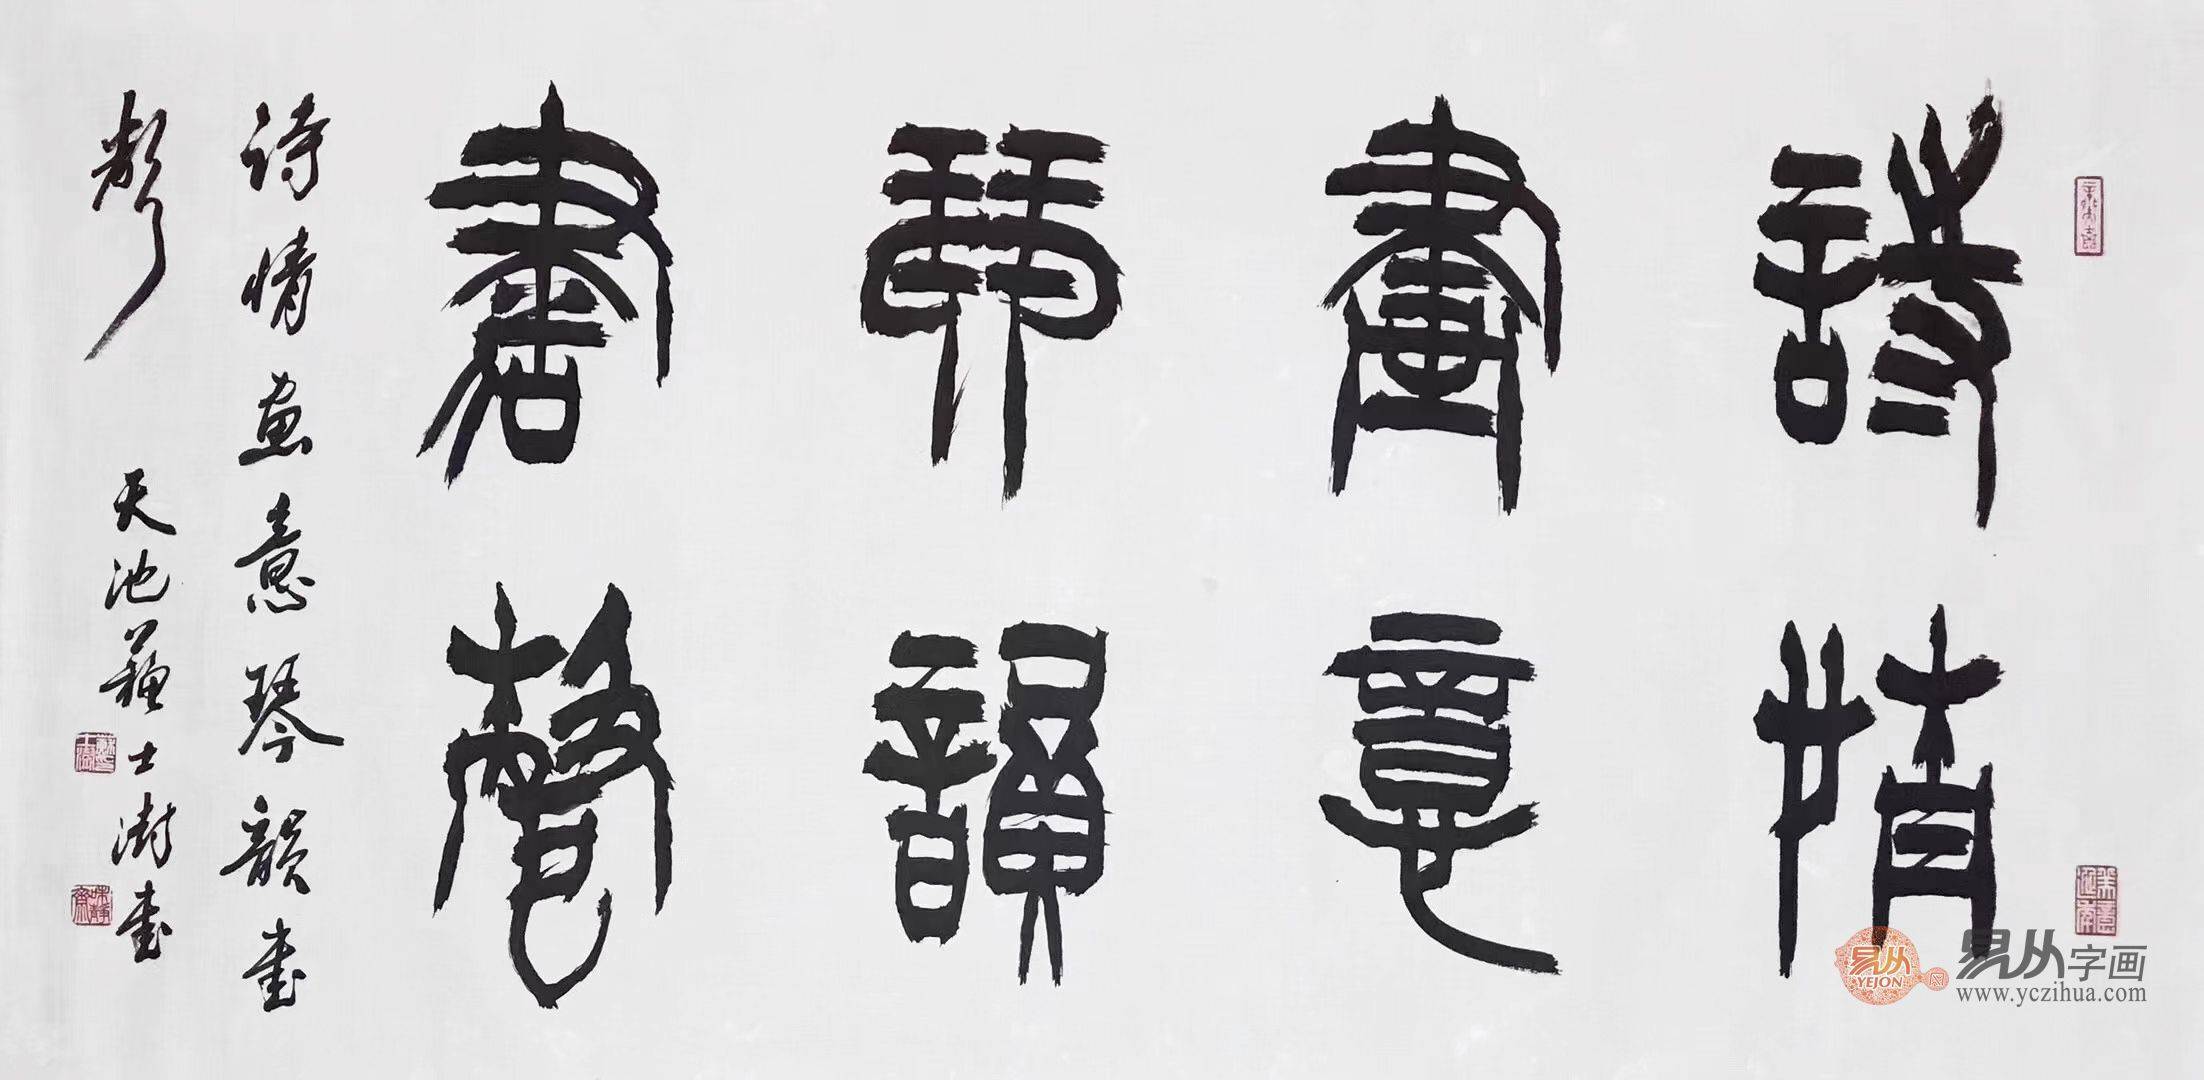 詩情
畫意
琴韻
書聲
诗情畫意琴韻書
聲 天池蘇士澍書
易从
YEJON
易从字画
www.yczihua.com